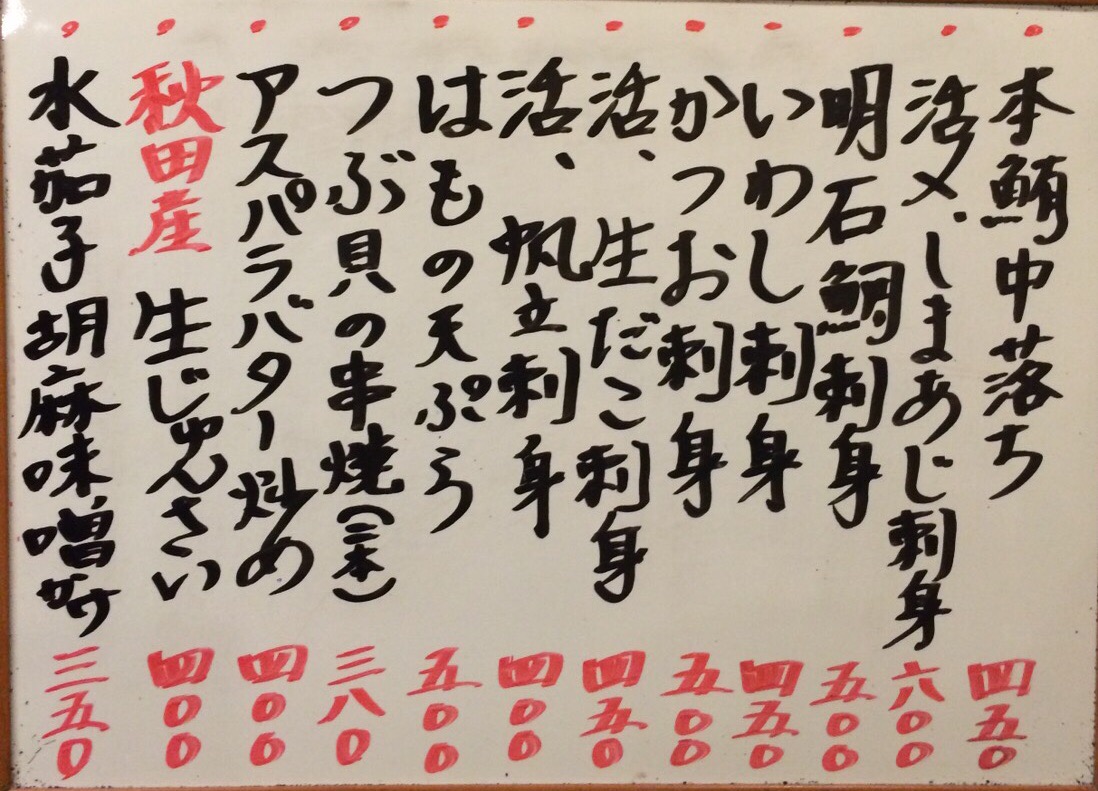 本鮪中落ち 四五〇
活〆、しまあじ刺身 六〇〇
明石鯛刺身 五〇〇
いわし刺身 四五〇
かつお刺身 五〇〇
活、生だこ刺身 四五〇
活、帆立刺身 四〇〇
はもの天ぷら 五〇〇
つぶ貝の串焼(二本) 三八〇
アスパラバター炒め 四〇〇
秋田産 生じゅんさい 四〇〇
水茄子胡麻味噌がけ 三五〇